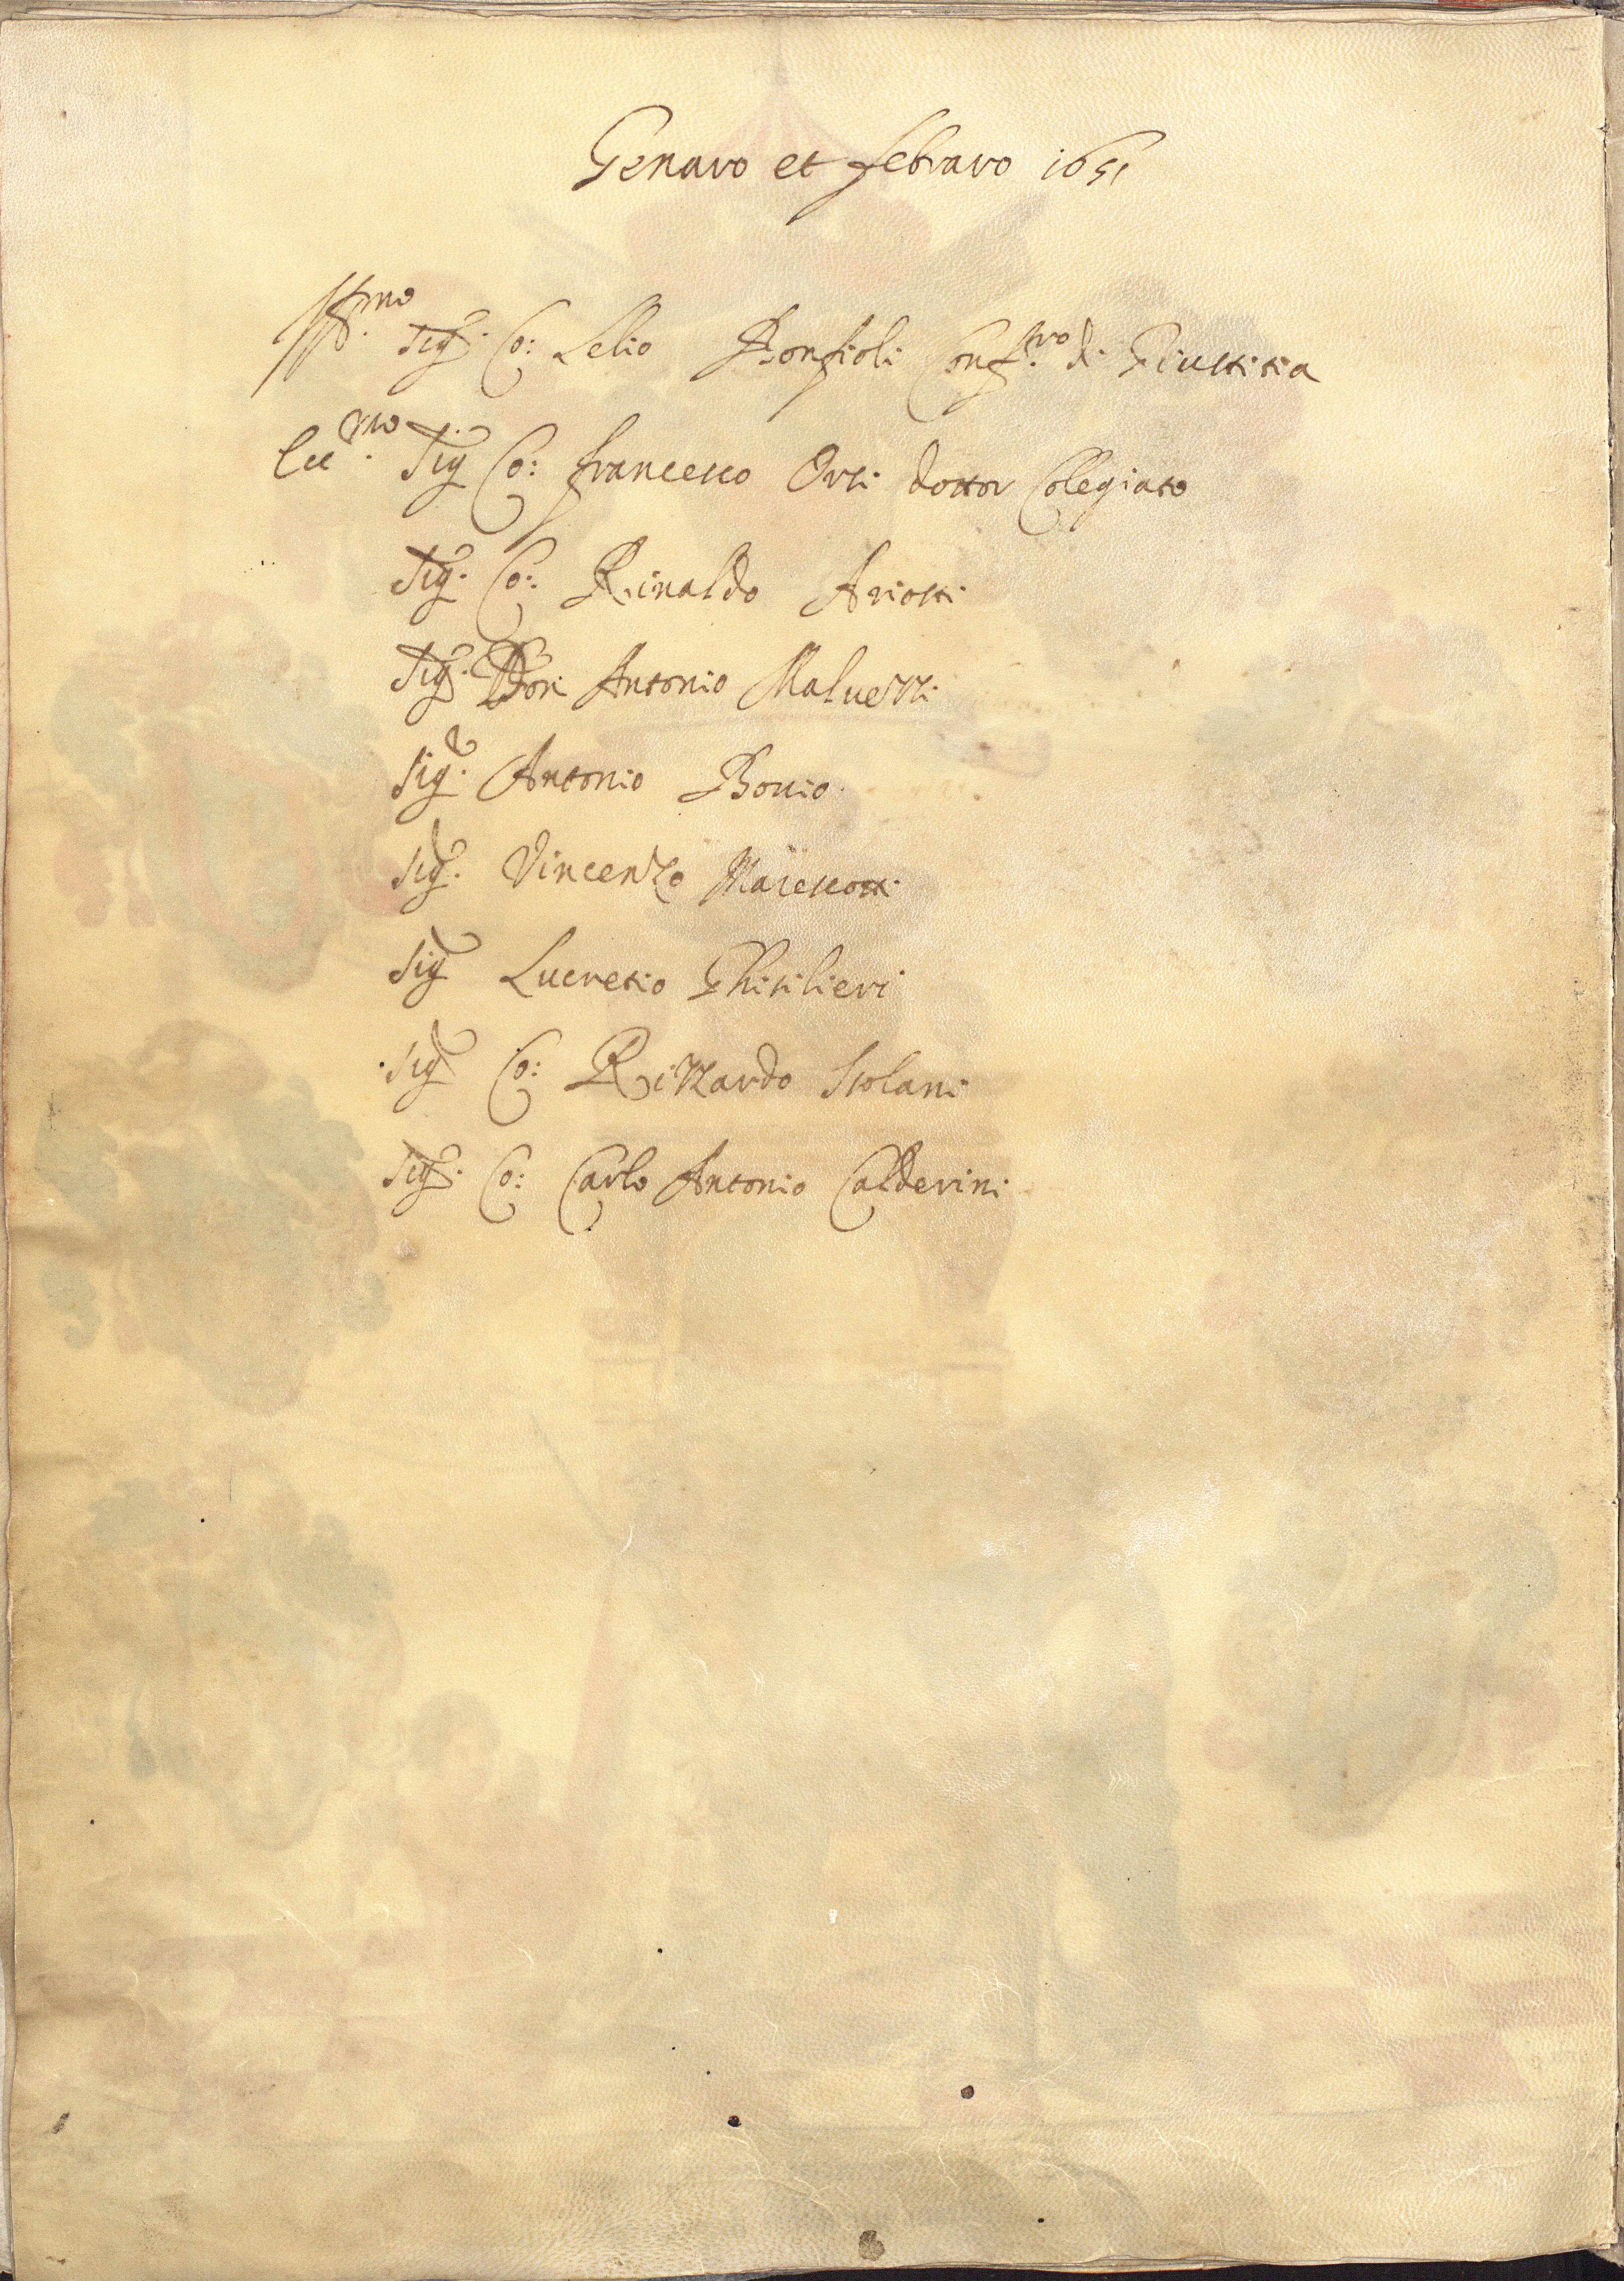 Genaro et febraro 1651
Ill.mo Sig.r Co: Lelio Bonfioli Conf.ro di Giustitia
Ecc.mo Sig.r Co: francesco Orsi dottor Collegiato
Sig.r Co: Rinaldo Ariosti
Sig.r Don Antonio Maluezzi
Sig.r Antonio Bouio
Sig.r Vincenzo Marescotti
Sig.r Lucretio Ghisilieri
Sig.r Co: Rizzardo Isolani
Sig.r Co: Carlo Antonio Calderini